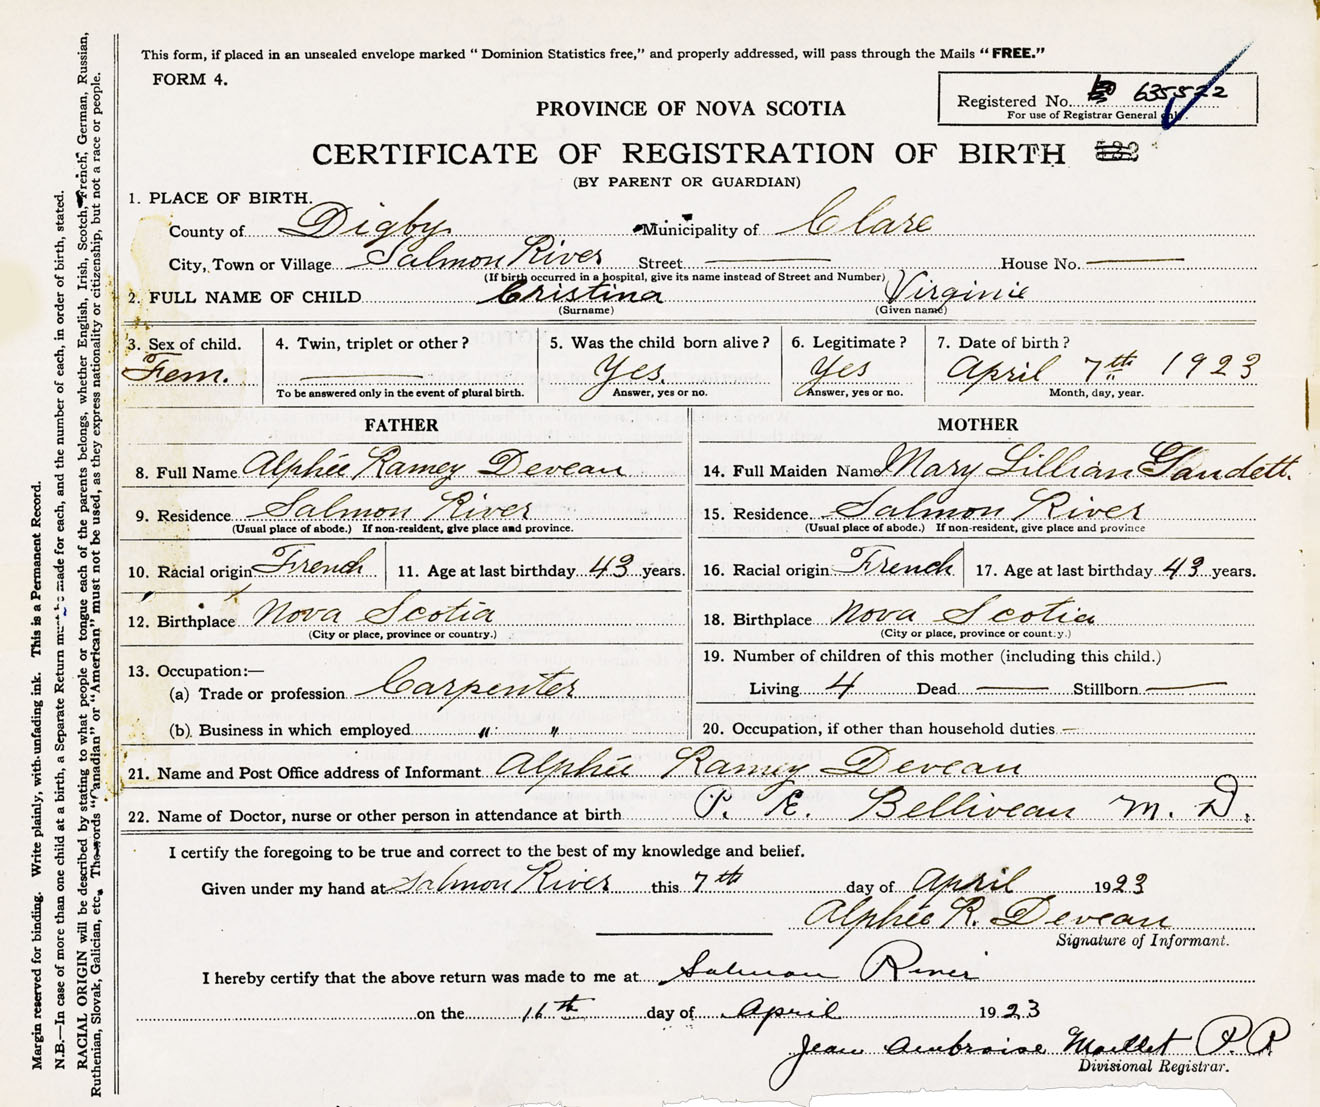 This form, if placed in an unsealed envelope marked "Dominion Statistics free," and properly addressed, will pass through the Mails "FREE."
FORM 4.
Registered No. 635522
For use of Registrar General only
PROVINCE OF NOVA SCOTIA
CERTIFICATE OF REGISTRATION OF BIRTH
(BY PARENT OR GUARDIAN)
1. PLACE OF BIRTH.
County of Digby Municipality of Clare
City, Town or Village Salmon River Street — House No. —
(If birth occurred in a hospital, give its name instead of Street and Number)
2. FULL NAME OF CHILD Cristina Virginie
(Surname) (Given name)
3. Sex of child. 4. Twin, triplet or other? 5. Was the child born alive? 6. Legitimate? 7. Date of birth?
Fem. — Yes. Yes April 7th 1923
To be answered only in the event of plural birth. Answer, yes or no. Answer, yes or no. Month, day, year.
FATHER MOTHER
8. Full Name Alphée Ramey Deveau 14. Full Maiden Name Mary Lillian Gaudett.
9. Residence Salmon River 15. Residence Salmon River
(Usual place of abode.) If non-resident, give place and province. (Usual place of abode.) If non-resident, give place and province
10. Racial origin French 11. Age at last birthday 43 years. 16. Racial origin French 17. Age at last birthday 43 years.
12. Birthplace Nova Scotia 18. Birthplace Nova Scotia
(City or place, province or country.) (City or place, province or country.)
13. Occupation:— 19. Number of children of this mother (including this child.)
(a) Trade or profession Carpenter Living 4 Dead — Stillborn —
(b) Business in which employed " " 20. Occupation, if other than household duties —
21. Name and Post Office address of Informant Alphée Ramey Deveau
22. Name of Doctor, nurse or other person in attendance at birth P. E. Belliveau M. D.
I certify the foregoing to be true and correct to the best of my knowledge and belief.
Given under my hand at Salmon River this 7th day of April 1923
Alphée R. Deveau
Signature of Informant.
I hereby certify that the above return was made to me at Salmon River
on the 16th day of April 1923
Jean Ambroise Maillet P. P.
Divisional Registrar.
Margin reserved for binding. Write plainly, with unfading ink. This is a Permanent Record.
N.B.—In case of more than one child at a birth, a Separate Return must be made for each, and the number of each, in order of birth, stated.
RACIAL ORIGIN will be described by stating to what people or tongue each of the parents belongs, whether English, Irish, Scotch, French, German, Russian,
Ruthenian, Slovak, Galician, etc. The words "Canadian" or "American" must not be used, as they express nationality or citizenship, but not a race or people.